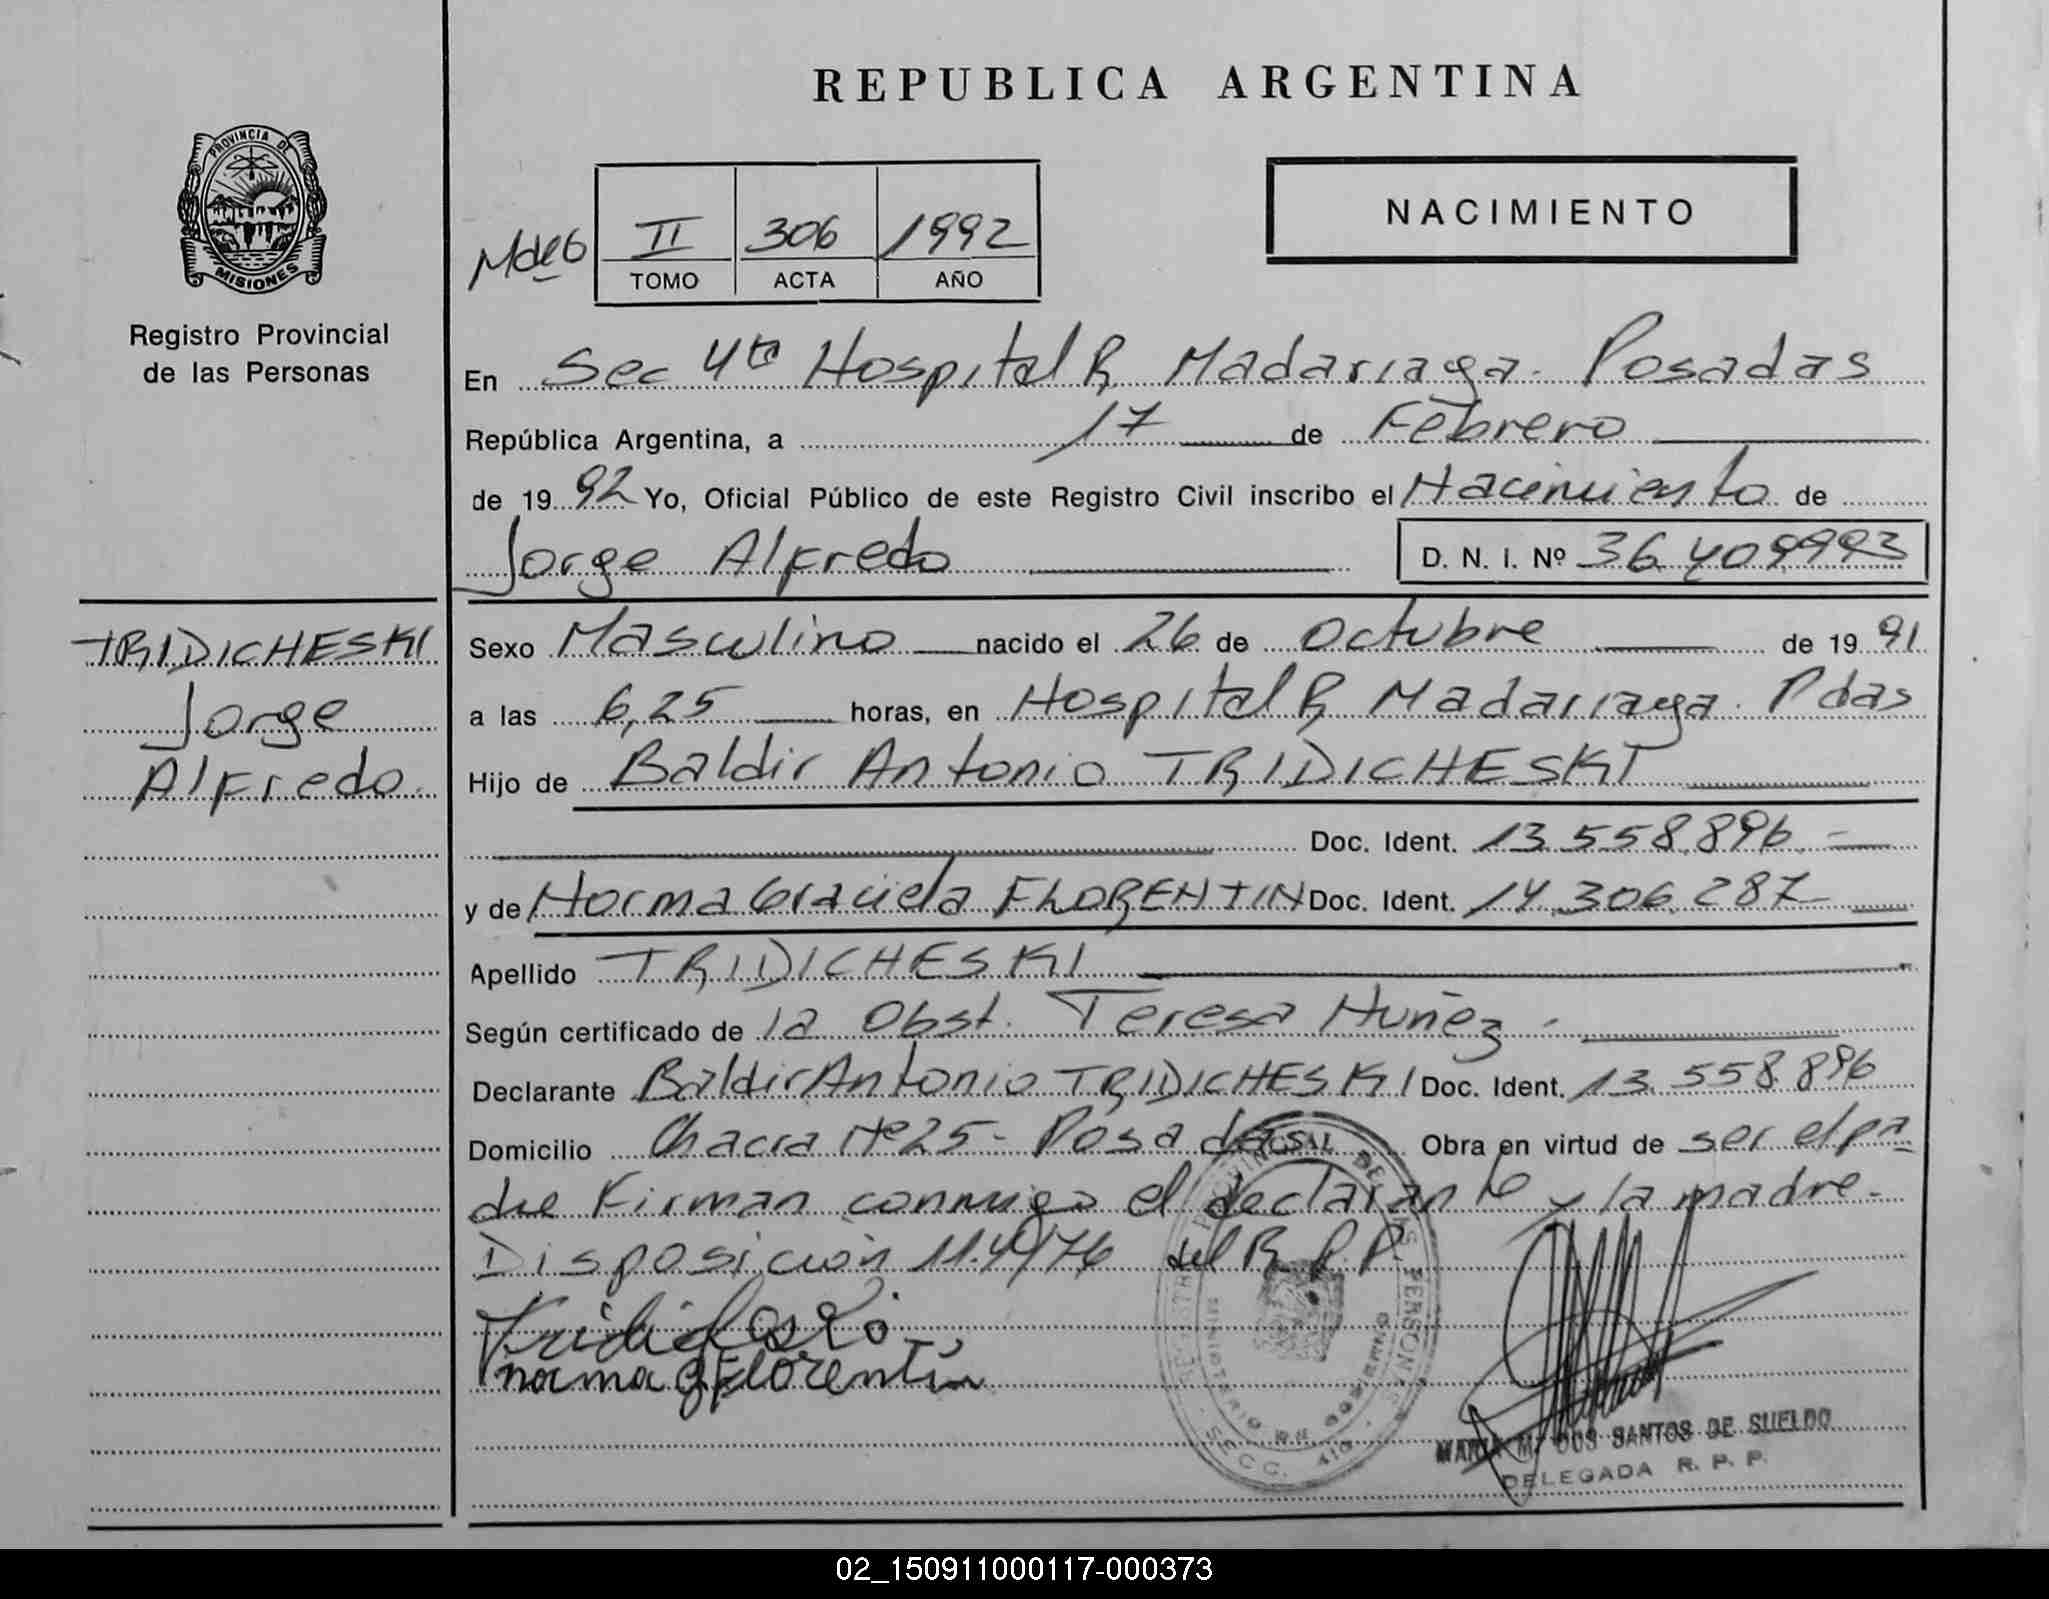 REPUBLICA ARGENTINA
PROVINCIA DE
MISIONES
Registro Provincial
de las Personas
II 306 1992
TOMO ACTA AÑO
NACIMIENTO
En Sec 4ta Hospital R. Madariaga. Posadas
República Argentina, a 17 de Febrero
de 1992 Yo, Oficial Público de este Registro Civil inscribo el Nacimiento de
Jorge Alfredo D. N. I. Nº 36.409993
TRIDICHESKI
Jorge
Alfredo.
Sexo Masculino nacido el 26 de Octubre de 1991
a las 6,25 horas, en Hospital R. Madariaga. Pdas
Hijo de Baldir Antonio TRIDICHESKI
Doc. Ident. 13.558.896.-
y de Norma Graciela FLORENTIN Doc. Ident. 14.306.287
Apellido TRIDICHESKI
Según certificado de la Obst. Teresa Nuñez.
Declarante Baldir Antonio TRIDICHESKI Doc. Ident. 13.558.896
Domicilio Chacra Nº 25- Posadas Obra en virtud de ser el pa
dre Firman conmigo el declarante y la madre.
Disposición 11.49/76 del R. P. P.
norma g Florentín
MINISTERIO DE GOBIERNO
SECC. 4ta
MARIA M. DOS SANTOS DE SUELDO
DELEGADA R. P. P.
02_150911000117-000373